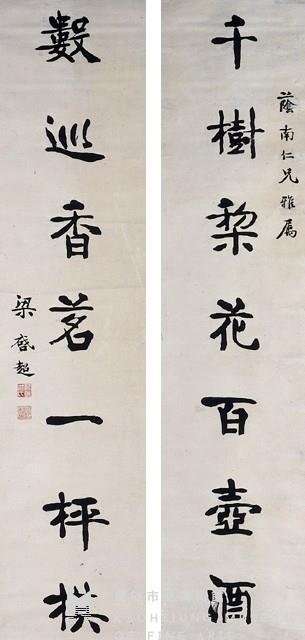 蔭南仁兄雅屬
千樹棃花百壺酒
數巡香茗一枰棋
梁啓超